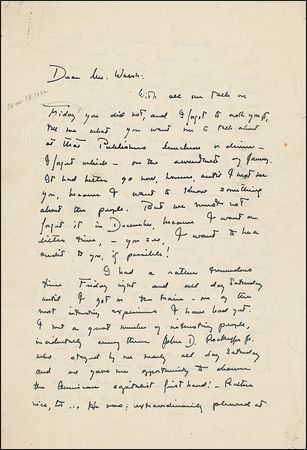 Nov. 18, 1932
Dear Mr. Walsh:
With all our talk on
Friday you did not, and I forgot to ask you to,
tell me what you want me to talk about
at that Publishers luncheon or dinner -
I forget which - on the seventeenth of January.
It had better go over, however, until I next see
you, because I want to know something
about the people. But we must not
forget it in December, because I want a
better time, - you see, I want to be a
credit to you, if possible!
I had a rather tremendous
time Friday night and all day Saturday
until I got on the train - one of the
most interesting experiences I have had yet.
I met a great number of interesting people,
incidentally among them John D. Rockefeller Jr.
who stayed by me nearly all day Saturday
and so gave me opportunity to observe
the American capitalist first hand! - Rather
nice, too ... He was extraordinarily pleased at